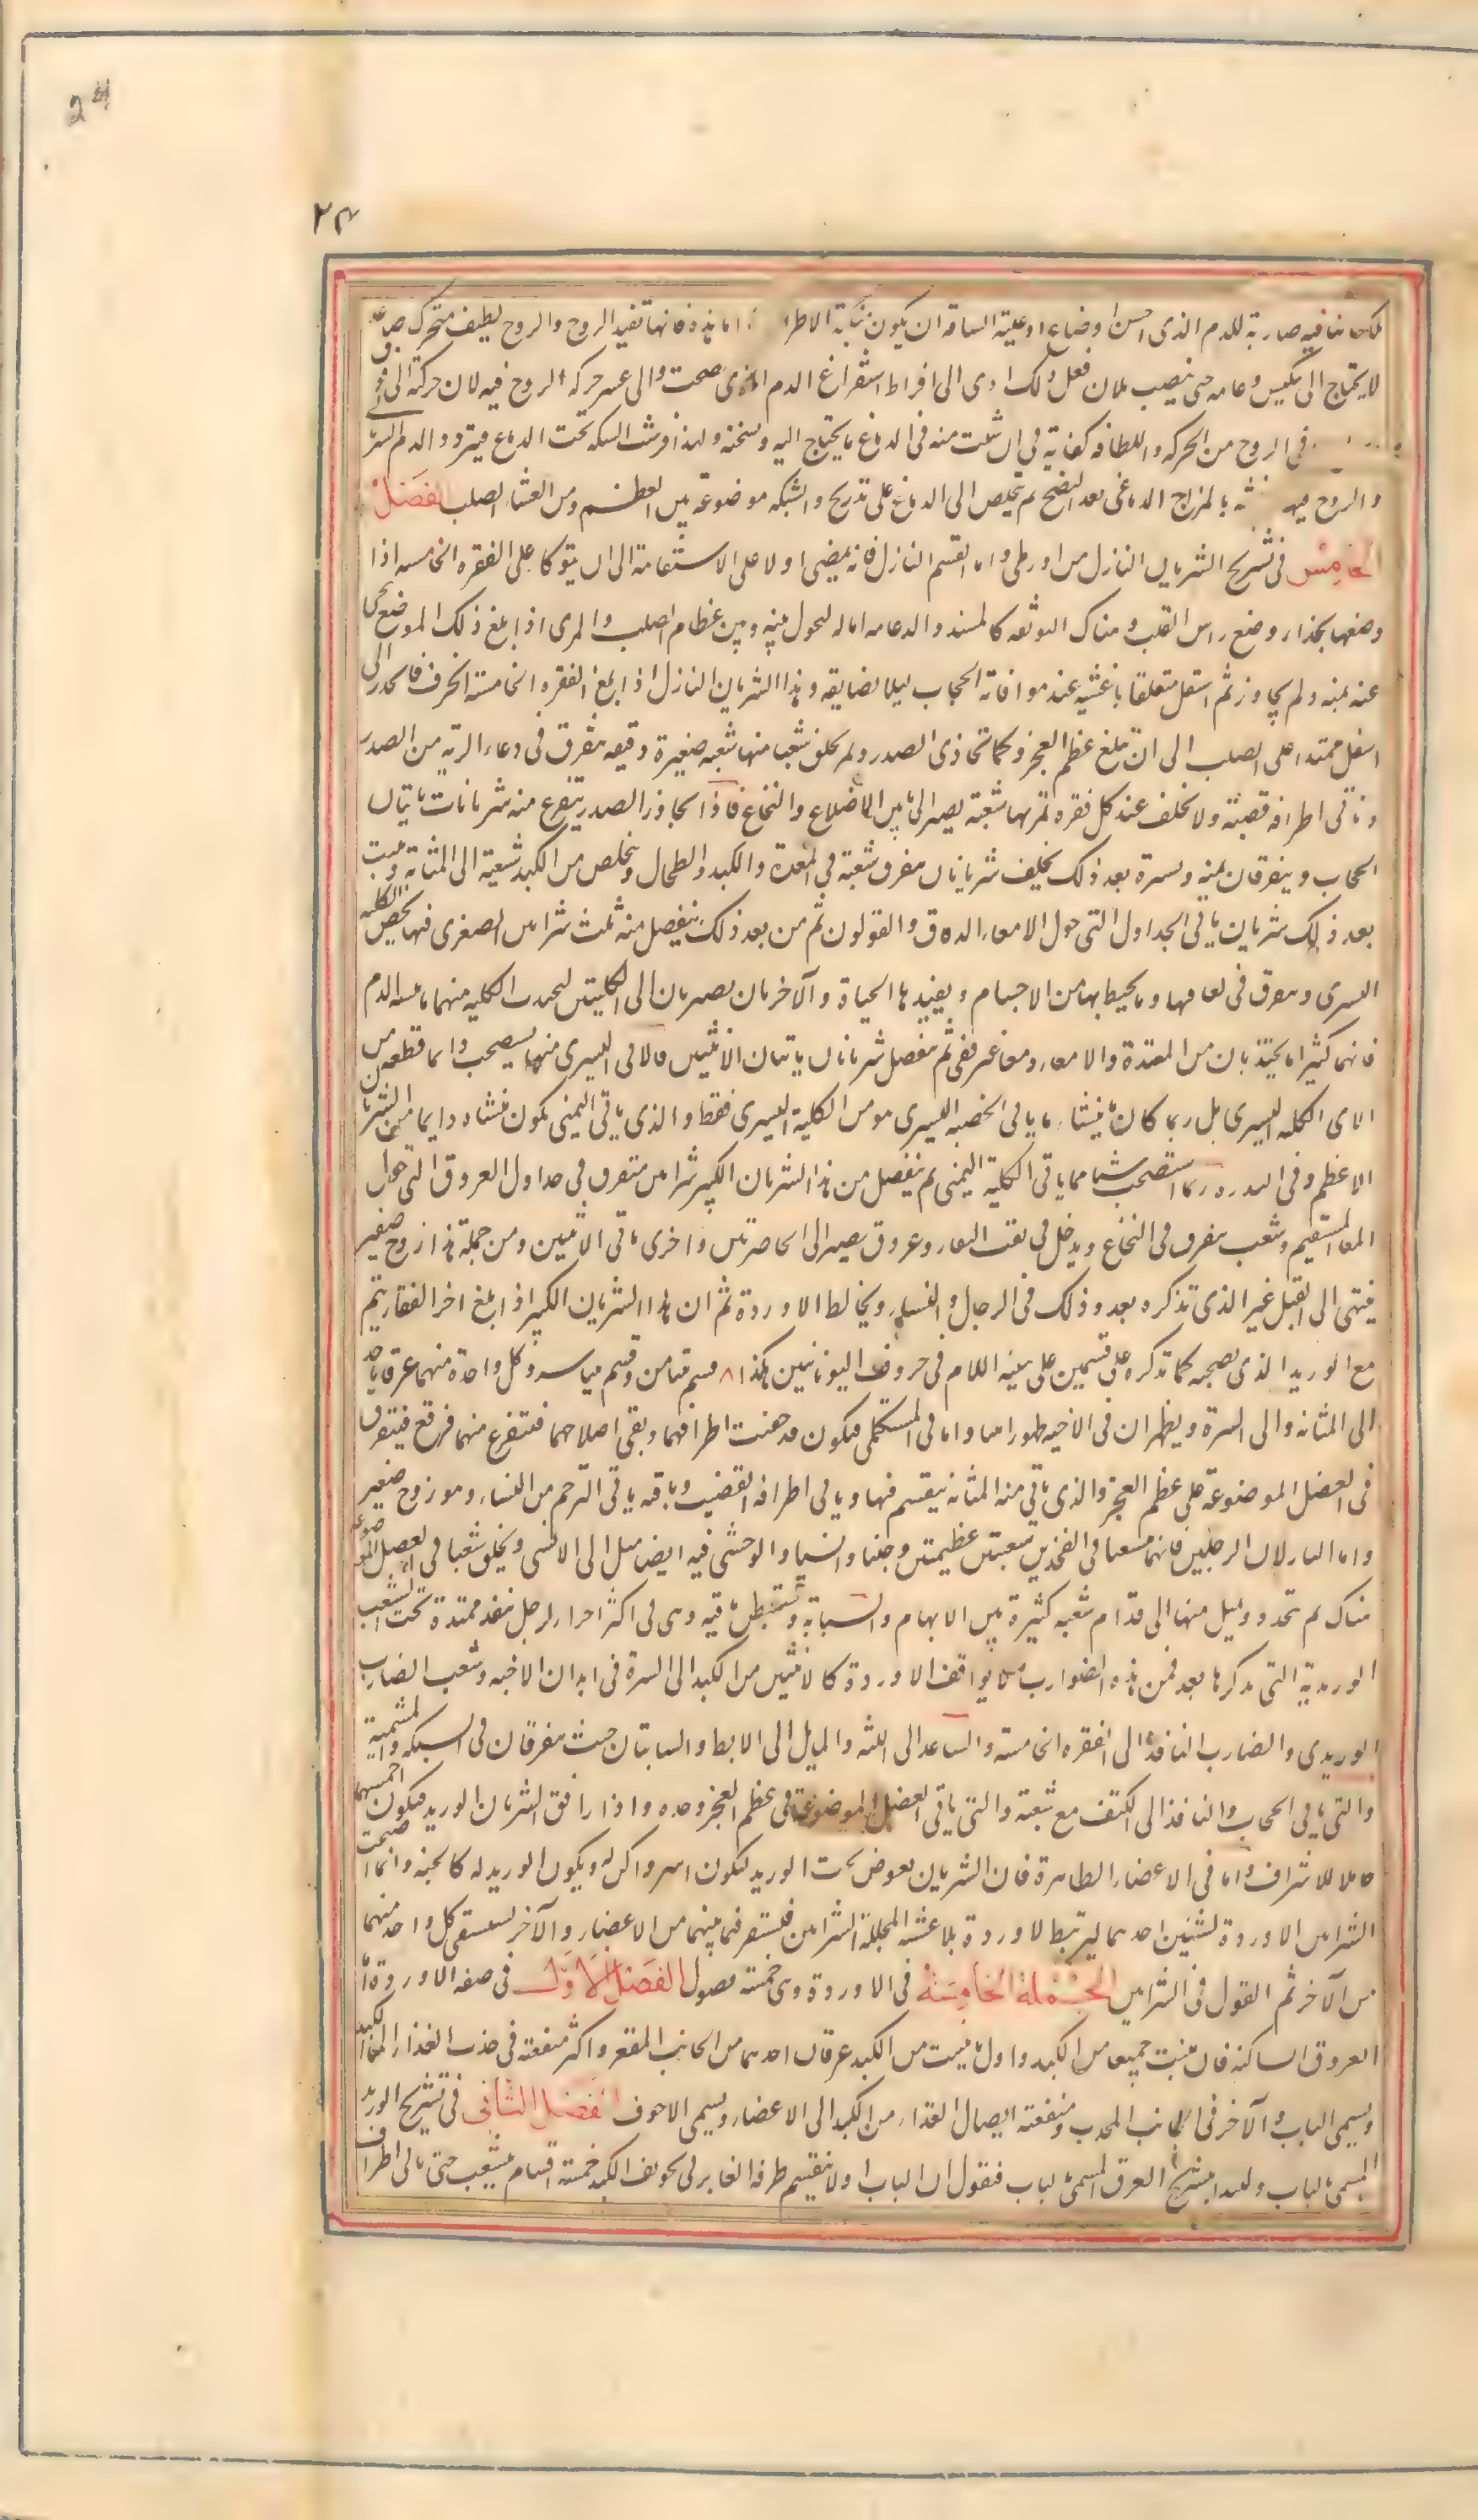 24
٢٣
صاربة للدم الذى احسن اوضاع اوعيته الساقه ان يكون منتكسة الاطراف اما هذه فانها تنفذ الروح والروح لطيف متحرك صاعد
لا يحتاج الى تنكيس وعائه حتى ينصب بل ان فعل ذلك ادى الى افراط استفراغ الدم الذى صحبه والى عسر حركة الروح فيه لان حركته الى فوق
فى الروح من الحركه واللطافه كفاية فى ان ينبث منه فى الدماغ ما يحتاج اليه ويسخنه ولهذا فرشت الشبكه تحت الدماغ فيتردد الدم الشريانى
والروح فيها بالمزاج الدماغى بعد النضج ثم يتخلص الى الدماغ على تدريج والشبكه موضوعة بين العظم وبين الغشاء الصلب الفصل
الخامس فى تشريح الشريان النازل من اورطى واما القسم النازل فانه يمضى اولا على الاستقامة الى ان يتوكا على الفقره الخامسه اذ
وضعها بحذاء وضع راس القلب وهناك التوثه كالمسند والدعامه له لتحول بينه وبين عظام الصلب والمرى اذا بلغ ذلك الموضع تنحى
عنه يمنه ولم يجاوزه ثم استقل متعلقا باغشيه عند موافاته الحجاب ليلا يضايقه وهذا الشريان النازل اذا بلغ الفقره الخامسة انحرف فانحدر الى
اسفل ممتدا على الصلب الى ان يبلغ عظم العجز وكما تحاذى الصدر ويمر تخلف شعبا منها شعبه صغيرة دقيقه تتفرق فى وعاء الريه من الصدر
وتاتى اطرافه قصبته ولا تخلف عند كل فقره تمر بها شعبة يصير الى ما بين الاضلاع والنخاع فاذا تجاوز الصدر يتفرع منه شريانات ياتيان
الحجاب ويتفرقان يمنه ويسرة بعد ذلك يخلف شريانا يتفرق شعبه فى المعدة والكبد والطحال ويتخلص من الكبد شعبة الى المثانة وينبت
بعد ذلك شريان ياتى الجداول التى حول الامعاء الدقاق والقولون ثم من بعد ذلك ينفصل منه ثلث شرايين الصغرى منها يخص الكليه
اليسرى ويتفرق فى لفايفها وما يحيط بها من الاجسام ويفيدها الحياة والآخريان يصيران الى الكليتين لتجذب الكليه منهما مائية الدم
فانهما كثيرا ما يجتذبان من المعدة والامعاء دما غير نقى ثم ينفصل شريانان ياتيان الانثيين فالآتى اليسرى منهما يستصحب دايما قطعه من
الآتى الكليه اليسرى بل ربما كان منشاء ما ياتى الخصيه اليسرى هو من الكلية اليسرى فقط والذى ياتى اليمنى يكون منشاه دايما من الشريان
الاعظم وفى الندره ربما استصحب شيا مما ياتى الكلية اليمنى ثم ينفصل من هذا الشريان الكبير شرايين تتفرق فى جداول العروق التى حول
المعا المستقيم وشعب تتفرق فى النخاع ويدخل فى ثقب الفقار وعروق تصير الى الخاصرتين واخرى تاتى الانثيين ومن جملة هذا زوج صغير
ينتهى الى القبل غير الذى نذكره بعد وذلك فى الرجال والنساء ويخالط الاوردة ثم ان هذا الشريان الكبير اذا بلغ اخر الفقار يتم
مع الوريد الذى يصحبه كما نذكره على قسمين على هيئة اللام فى حروف اليونانيين هكذا ٨ قسم يتيامن وقسم يتياسر وكل واحدة منهما عرق ياخذ
الى المثانه والى السرة ويظهران فى الاجنه ظهورا بينا واما فى المستكملى فيكون قد جفت اطرافهما وبقى اصلاهما فيتفرع منهما فروع يتفرق
فى العضل الموضوعة على عظم العجز والذى ياتى منه المثانه ينقسم فيها وياتى اطرافه القضيب وباقيه ياتى الرحم من النساء وهو زوج صغير
واما النازلان الى الرجلين فانهما يتشعبان فى الفخذين شعبتين عظيمتين وحشيا وانسيا والوحشى فيه ايضا ميل الى الانسى ويخلف شعبا فى العضل الموضوعه
هناك ثم تنحدر ويميل منها الى قدام شعبه كثيرة بين الابهام والسبابة ويستبطن باقيه وهى فى اكثر اجزاء الرجل تنفذ ممتدة تحت الشعب
الوريدية التى نذكرها بعد فمن هذه الضوارب ما لا يوافق الاوردة كالاتيين من الكبد الى السرة فى ابدان الاجنه وشعب الضارب
الوريدى والضارب النافذ الى الفقره الخامسة والصاعد الى اللبه والمايل الى الابط والسباتيان حيث يتفرقان فى الشبكه والمشيمية
والتى تاتى الحجاب والنافذ الى الكتف مع شعبه والتى ياتى العضل الموضوعة فى عظم العجز وحده واذا رافق الشريان الوريد فيكون اخسهما
حاملا للاشرف واما فى الاعضاء الظاهرة فان الشريان يغوض تحت الوريد ليكون استر واكن له ويكون الوريد له كالجنه وانما صحبت
الشرايين الاوردة لشيئين احدهما ليرتبط الاوردة بالاغشيه المجللة الشرايين فتستقر فيما بينهما من الاعضاء والآخر ليستقى كل واحد منهما
من الآخر تم القول فى الشرايين الجملة الخامسة فى الاوردة وهى خمسة فصول الفصل الاول فى صفه الاوردة اما
العروق الساكنه فان منبت جميعها من الكبد واول ما ينبت من الكبد عرقان احدهما من الجانب المقعر واكثر منفعته فى جذب الغذاء الى الكبد
ويسمى الباب والآخر فى الجانب المحدب ومنفعته ايصال الغذاء من الكبد الى الاعضاء ويسمى الاجوف الفصل الثانى فى تشريح الوريد
المسمى بالباب ولنبدا بتشريح العرق المسمى بالباب فنقول ان الباب اولا ينقسم طرفه الغاير فى تجويف الكبد خمسة اقسام يتشعب حتى ياتى اطراف